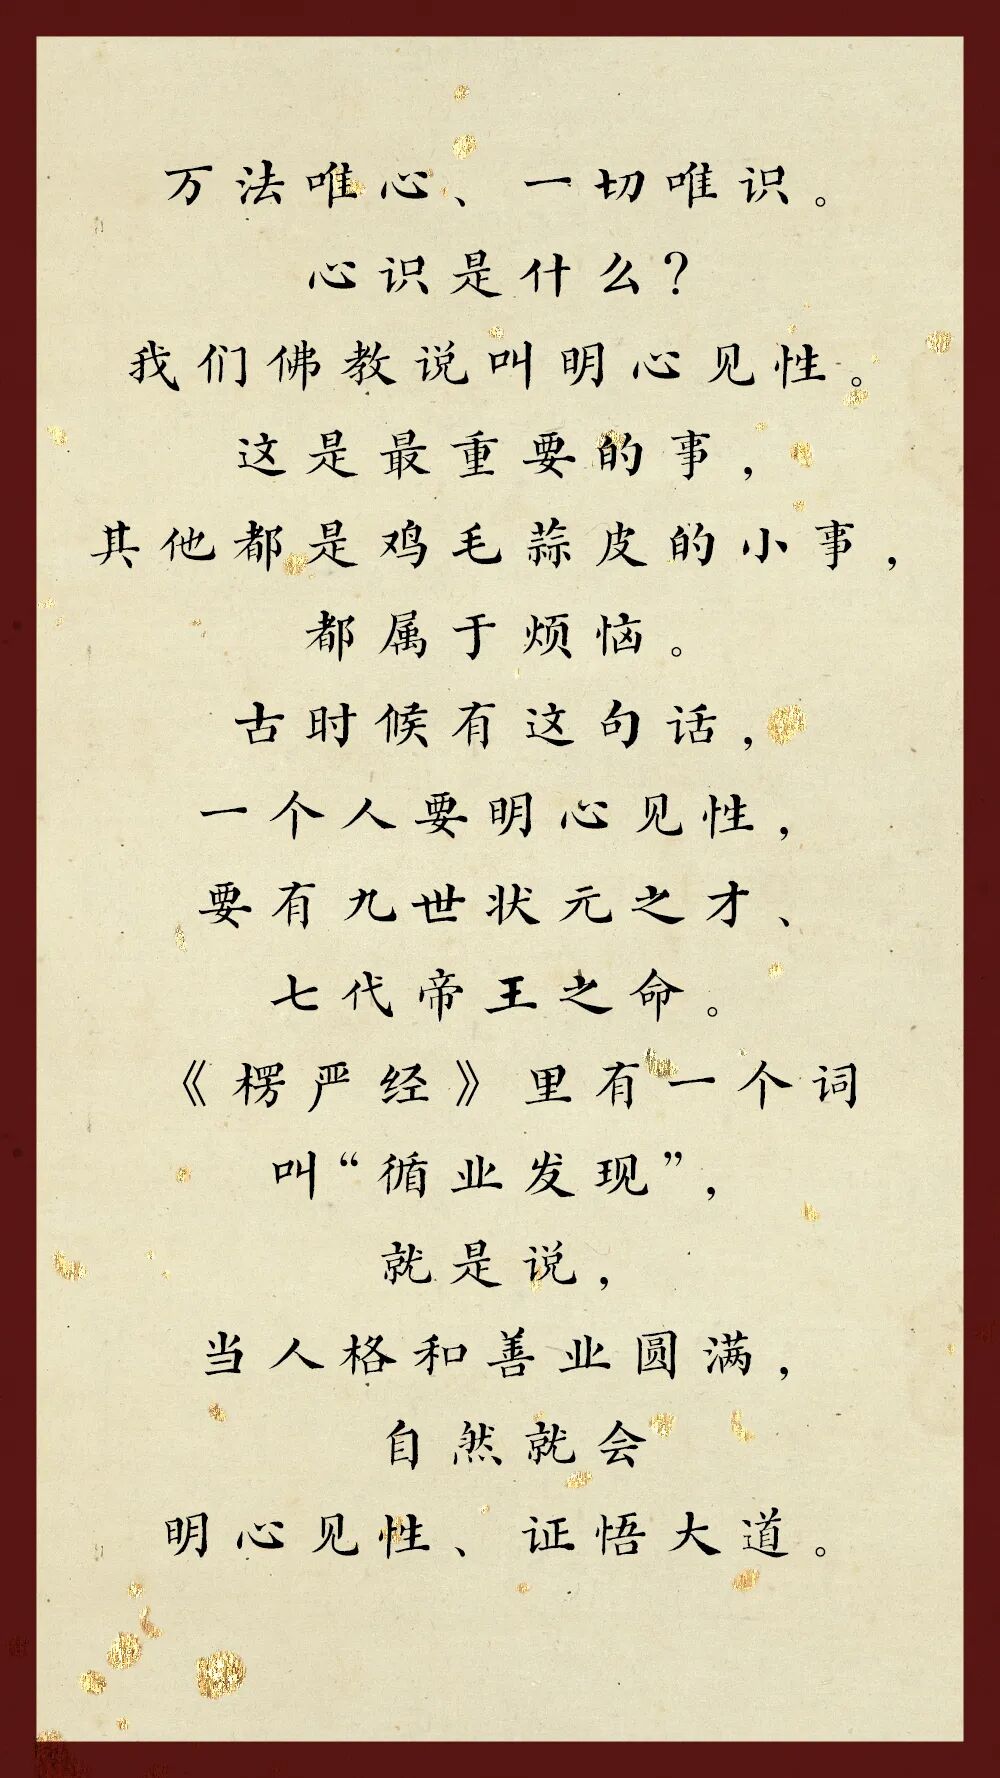 万法唯心、一切唯识。
心识是什么？
我们佛教说叫明心见性。
这是最重要的事，
其他都是鸡毛蒜皮的小事，
都属于烦恼。
古时候有这句话，
一个人要明心见性，
要有九世状元之才、
七代帝王之命。
《楞严经》里有一个词
叫“循业发现”，
就是说，
当人格和善业圆满，
自然就会
明心见性、证悟大道。